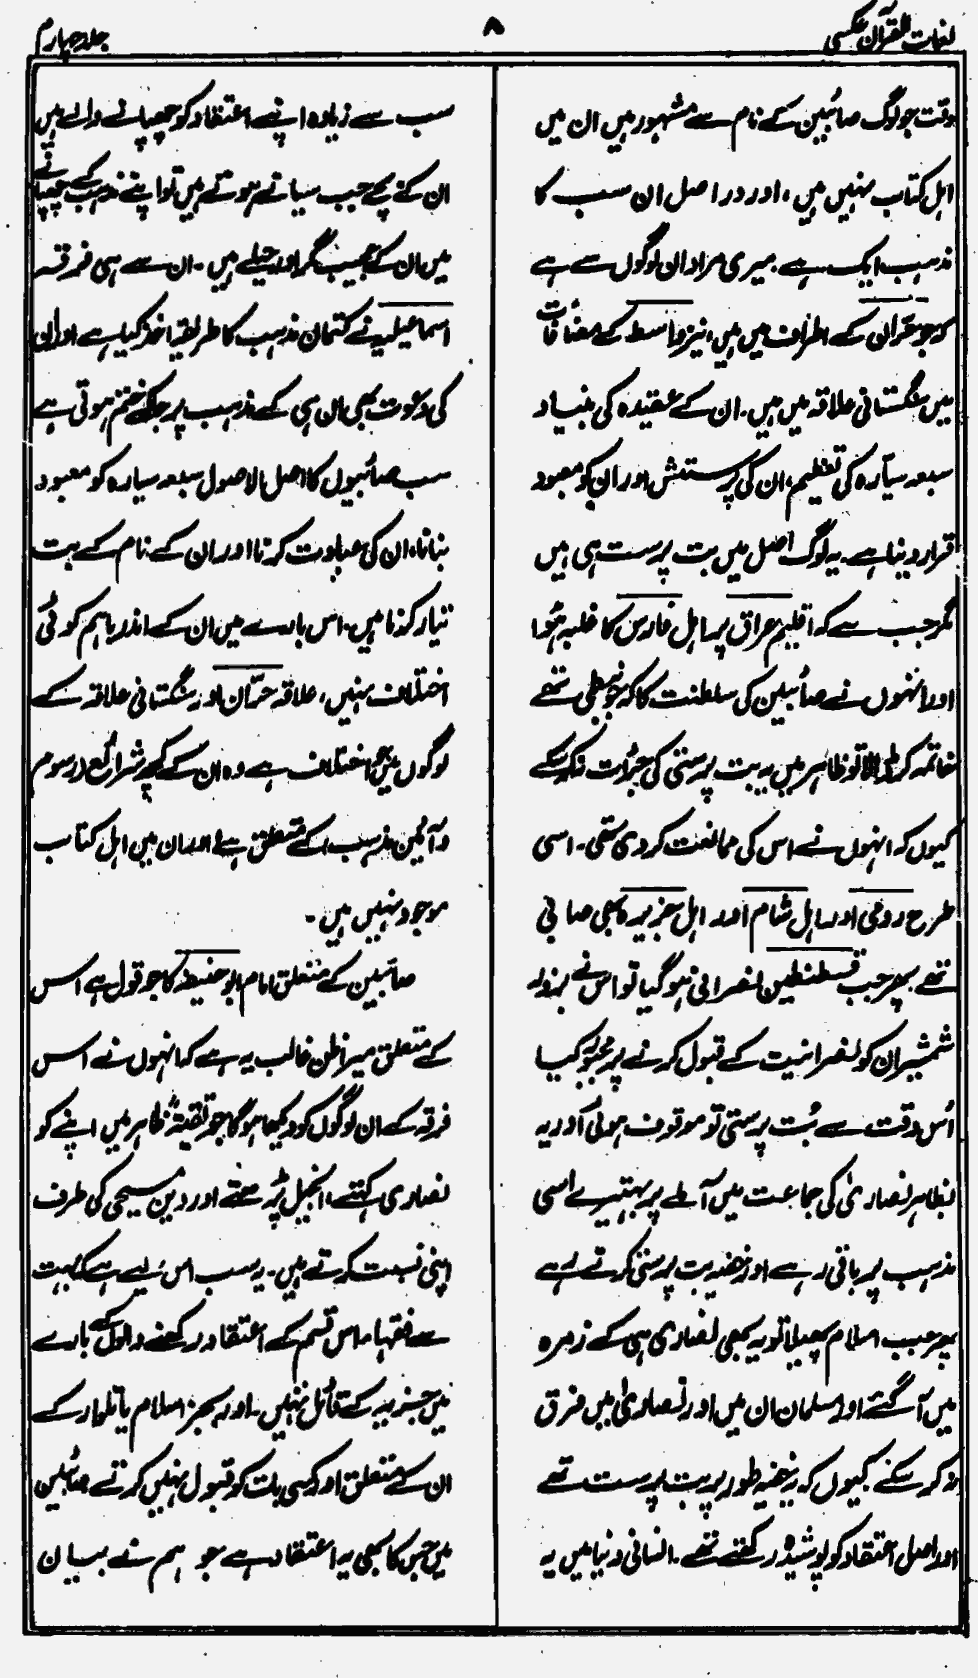 لغات القرآن عکسی
۸
جلد چہارم
وقت جو لوگ صابئین کے نام سے مشہور ہیں ان میں
اہل کتاب نہیں ہیں، اور دراصل ان سب کا
مذہب ایک ہے۔ میری مراد ان لوگوں سے ہے
کہ جو حرّان کے اطراف میں ہیں، نیز واسط کے مضافات
میں سنگستانی علاقہ میں ہیں۔ ان کے عقیدہ کی بنیاد
سبعہ سیّارہ کی تعظیم، ان کی پرستش اور ان کو معبود
قرار دینا ہے۔ یہ لوگ اصل میں بت پرست ہی ہیں
مگر جب سے کہ اقلیم عراق پر اہل فارس کا غلبہ ہُوا
اور انہوں نے صائبین کی سلطنت کا کہ جو نبطی تھے
خاتمہ کر ڈالا تو ظاہر میں یہ بت پرستی کی جرأت نہ کر سکے
کیوں کہ انہوں نے اس کی ممانعت کر دی تھی۔ اسی
طرح رومی اور اہل شام اور اہل جزیرہ بھی صابی
تھے پھر جب قسطنطین نصرانی ہو گیا تو اس نے بزور
شمشیر ان کو نصرانیت کے قبول کرنے پر مجبور کیا
اُس وقت سے بُت پرستی تو موقوف ہوئی اور یہ
بظاہر نصاریٰ کی جماعت میں آملے پر بہتیرے اسی
مذہب پر باقی رہے اور خفیہ بت پرستی کرتے رہے
پھر جب اسلام پھیلا تو یہ بھی نصاریٰ ہی کے زمرہ
میں آ گئے اور مسلمان ان میں اور نصاریٰ میں فرق
نہ کر سکے کیوں کہ یہ خفیہ طور پر بت پرست تھے
اور اصل اعتقاد کو پوشیدہ رکھتے تھے۔ انسانی دنیا میں یہ
سب سے زیادہ اپنے اعتقاد کو چھپانے والے ہیں
ان کے بچے جب سیانے ہوتے ہیں تو اپنے مذہب کے چھپانے
میں ان کے عجیب مکر اور حیلے ہیں۔ ان سے ہی فرقہ
اسماعیلیہ نے کتمان مذہب کا طریقہ اخذ کیا ہے اور ان
کی دعوت بھی ان ہی کے مذہب پر جا کے ختم ہوتی ہے
سب صائبیوں کا اصل الاصول سبعہ سیارہ کو معبود
بنانا، ان کی عبادت کرنا اور ان کے نام کے بت
تیار کرنا ہیں۔ اس بارے میں ان کے اندر باہم کوئی
اختلاف نہیں، علاقہ حرّان اور سنگستانی علاقہ کے
لوگوں میں جو اختلاف ہے وہ ان کے کچھ شرائع و رسوم
و آئین مذہب کے متعلق ہے اور ان میں اہل کتاب
موجود نہیں ہیں۔
صائبین کے متعلق امام ابو حنیفہ کا جو قول ہے اس
کے متعلق میرا ظن غالب یہ ہے کہ انہوں نے اس
فرقہ کے ان لوگوں کو دیکھا ہوگا جو تقیۃً ظاہر میں اپنے کو
نصاریٰ کہتے، انجیل پڑھتے اور دین مسیحی کی طرف
اپنی نسبت کرتے ہیں۔ یہ سب اس لیے ہے کہ بہت
سے فقہاء اس قسم کے اعتقاد رکھنے والوں کے بارے
میں جزیہ کے قائل نہیں۔ اور بجز اسلام یا تلوار کے
ان کے متعلق اور کسی بات کو قبول نہیں کرتے صائبین
میں جس کا بھی یہ اعتقاد ہے جو ہم نے بیان